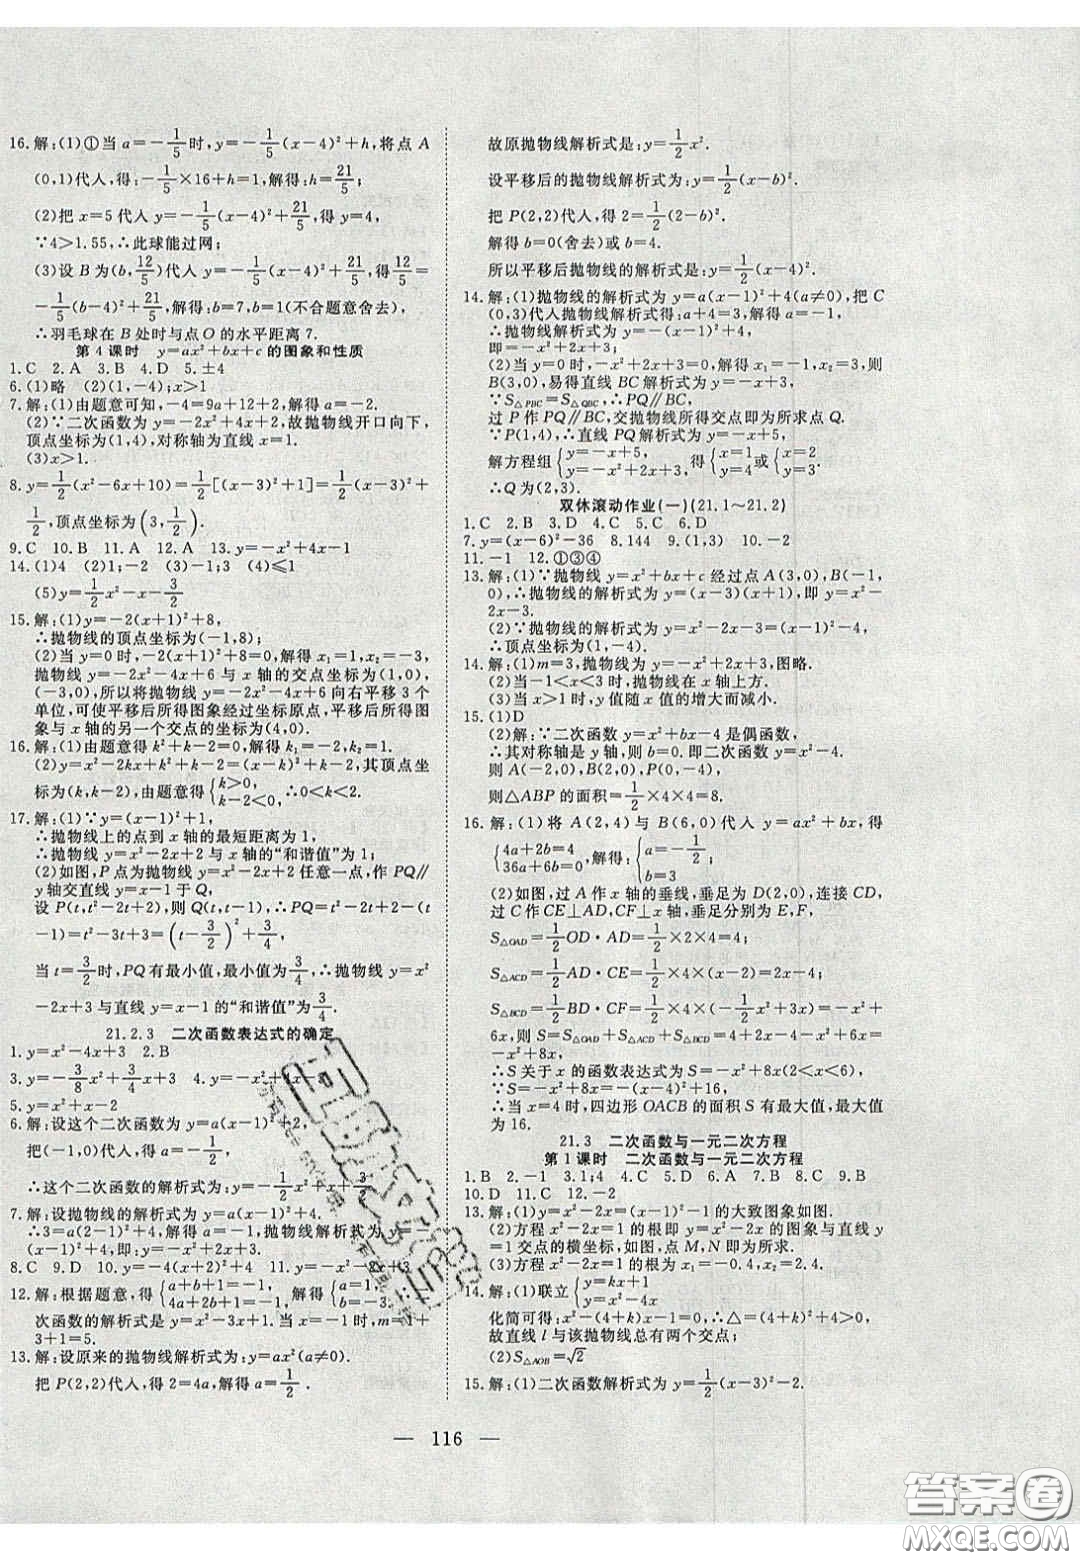 16.解:(1)①当 a=-1/5时,y=-1/5(x-4)²+h,将点 A
(0,1)代人,得:-1/5×16+h=1,解得:h=21/5
(2)把 x=5代人 y=-1/5(x-4)²+21/5,得 y=4,
∵4>1.55,∴此球能过网;
(3)设 B 为(b,12/5)代人 y=-1/5(x-4)²+21/5,得12/5=
-1/5(b-4)²+21/5,解得:b=7,b=1(不合题意舍去),
∴羽毛球在 B 处时与点 O 的水平距离 7.
第 4 课时 y=ax²+bx+c 的图象和性质
1.C 2.A 3.B 4.D 5.±4
6.(1)略 (2)(1,-4);x>1
7.解:(1)由题意可知,-4=9a+12+2,解得 a=-2.
(2)∵二次函数为 y=-2x²+4x+2,故抛物线开口向下,
顶点坐标为(1,4),对称轴为直线 x=1.
(3)x>1.
8.y=1/2(x²-6x+10)=1/2[(x-3)²+1]=1/2(x-3)²+
1/2,顶点坐标为(3,1/2).
9.C 10.B 11.A 12.A 13.y=-x²+4x-1
14.(1)4 (2)1;-2 (3)-1;3 (4)≤1
(5)y=1/2x²-x-3/2
15.解:(1)y=-2(x+1)²+8,
∴抛物线的顶点坐标为(-1,8);
(2)当 y=0 时,-2(x+1)²+8=0,解得 x₁=1,x₂=-3,
抛物线 y=-2x²-4x+6 与 x 轴的交点坐标为(1,0),
(-3,0),所以将抛物线 y=-2x²-4x+6 向右平移 3 个
单位,可使平移后所得图象经过坐标原点,平移后所得图
象与 x 轴的另一个交点的坐标为(4,0).
16.解:(1)由题意得 k²+k-2=0,解得 k₁=-2,k₂=1.
(2)y=x²-2kx+k²+k-2=(x-k)²+k-2,其顶点坐
标为(k,k-2),由题意得{k>0, k-2<0,∴0<k<2.
17.解:(1)∵y=(x-1)²+1,
∴抛物线上的点到 x 轴的最短距离为 1,
∴抛物线 y=x²-2x+2 与 x 轴的“和谐值”为 1;
(2)如图,P 点为抛物线 y=x²-2x+2 任意一点,作 PQ∥
y 轴交直线 y=x-1 于 Q,
设 P(t,t²-2t+2),则 Q(t,t-1),∴PQ=t²-2t+2-(t
-1)=t²-3t+3=(t-3/2)²+3/4,
当 t=3/2时,PQ 有最小值,最小值为3/4,∴抛物线 y=x²
-2x+3 与直线 y=x-1 的“和谐值”为3/4.
21.2.3 二次函数表达式的确定
1.y=x²-4x+3 2.B
3.y=-3/8x²+3/4x+3 4.y=-x²+
5.y=x²+x-2
6.解:设这个二次函数为 y=a(x-1)²+2,
把(-1,0)代人,得 a=-1/2,
∴这个二次函数的解析式为 y=-1/2x²+x+3/2.
7.解:设抛物线的解析式为 y=a(x-1)²+4,
∴3=a(2-1)²+4,解得 a=-1,抛物线解析式为 y=
-(x-1)²+4,即
8.C 9.D 10.y=-4(x+2)²+3 11.y=-x²+
12.解:根据题意,得{a+b+1=-1, 4a+2b+1=-1,解得{a=1, b=-3.
次函数的解析式是 y=x²-3x+1. 当 x=1 时,m=1+
3+1=5.
13.解:设原来的抛物线解析式为:y=ax²(a≠0).
把 P(2,2)代人,得 2=4a,解得 a=1/2.
故原抛物线解析式是:y=1/2x².
设平移后的抛物线解析式为:y=1/2(x-b)².
把 P(2,2)代人,得 2=1/2(2-b)².
解得 b=0(舍去)或 b=4.
所以平移后抛物线的解析式是:y=1/2(x-4)².
14.解:(1)抛物线的解析式为 y=a(x-1)²+4(a≠0),把 C
(0,3)代人抛物线解析式得:a+4=3,解得 a=-1,
∴抛物线解析式为 y=-(x-1)²+4,
即=-x²+2x+3
(2)令 y=0 时,-x²+2x+3=0,解得 x=-1,或 x=3,则
B(3,0),易得直线 BC 解析式为 y=-x+3,
∵S△PBC=S△QBC,∴PQ∥BC,
过 P 作 PQ∥BC,交抛物线所得交点即为所求点 Q.
∵P(1,4),∴直线 PQ 解析式为 y=-x+5,
解方程组{y=-x+5, y=-x²+2x+3;得{x=1 y=4或{x=2 y=3
∴Q 为(2,3).
双休滚动作业(一)(21.1~21.2)
1.C 2.B 3.D 4.C 5.C 6.D
7.y=(x-6)²-36 8.144 9.(1,3) 10.-2
11.-1 12.①③④
13.解:(1)∵抛物线 y=x²+bx+c 经过点 A(3,0),B(-1,
0),∴抛物线的解析式为 y=(x-3)(x+1),即 y=x²-
2x-3.
(2)∵抛物线的解析式为 y=x²-2x-3=(x-1)²-4,
∴顶点坐标为(1,-4).
14.解:(1)m=3,抛物线为 y=-x²+2x+3,图略.
(2)当-1<x<3 时,抛物线在 x 轴上方.
(3)当 x>1 时,y 值随 x 值的增大而减小.
15.(1)D
(2)解:∵二次函数 y=x²+bx-4 是偶函数,
∴其对称轴是 y 轴,则 b=0. 即二次函数 y=x²-4.
则 A(-2,0),B(2,0),P(0,-4),
则△ABP 的面积=1/2×4×4=8.
16.解:(1)将 A(2,4)与 B(6,0)代入 y=ax²+bx,得
{4a+2b=4 36a+6b=0,解得:{a=-1/2 b=3
(2)如图,过 A 作 x 轴的垂线,垂足为 D(2,0),连接 CD,
过 C 作 CE⊥AD,CF⊥x 轴,垂足分别为 E,F,
S△OAD=1/2OD·AD=1/2×2×4=4;
S△ACD=1/2AD·CE=1/2×4×(x-2)=2x-4;
S△BCD=1/2BD·CF=1/2×4×(-1/2x²+3x)=-x²+
6x,则 S=S△OAD+S△ACD+S△BCD=4+2x-4-x²+6x=
-x²+8x,
∴S 关于 x 的函数表达式为 S=-x²+8x(2<x<6),
∵S=-x²+8x=-(x-4)²+16,
∴当 x=4 时,四边形 OACB 的面积 S 有最大值,最大值
为 16.
21.3 二次函数与一元二次方程
第 1 课时 二次函数与一元二次方程
1.B 2.-1 3.1;4 4.C 5.D 6.A 7.B 8.C 9.B
10.D 11.C 12.-2
13.解:(1)y=x²-2x=(x-1)²-1 的大致图象如图.
(2)方程 x²-2x=1 的根即为 y=x²-2x 的图象与直线 y
=1 交点的横坐标,如图,点 M,N 即为所求.
(3)方程 x²-2x=1 的根为 x₁=-0.4,x₂=2.4.
14.解:(1)联立{y=kx+1 y=x²-4x
化简可得:x²-(4+k)x-1=0,∴△=(4+k)²+4>0,
故直线 l 与该抛物线总有两个交点;
(2)S△AOB=√2
15.解:(1)二次函数解析式为 y=1/2(x-3)²-2.
— 116 —
答案圈
MXQE.COM